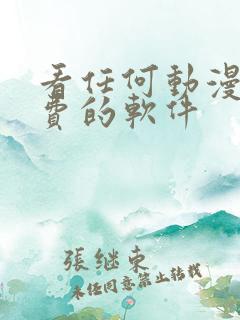 看任何動漫
費的軟件
張継東
未任同意禁止转载